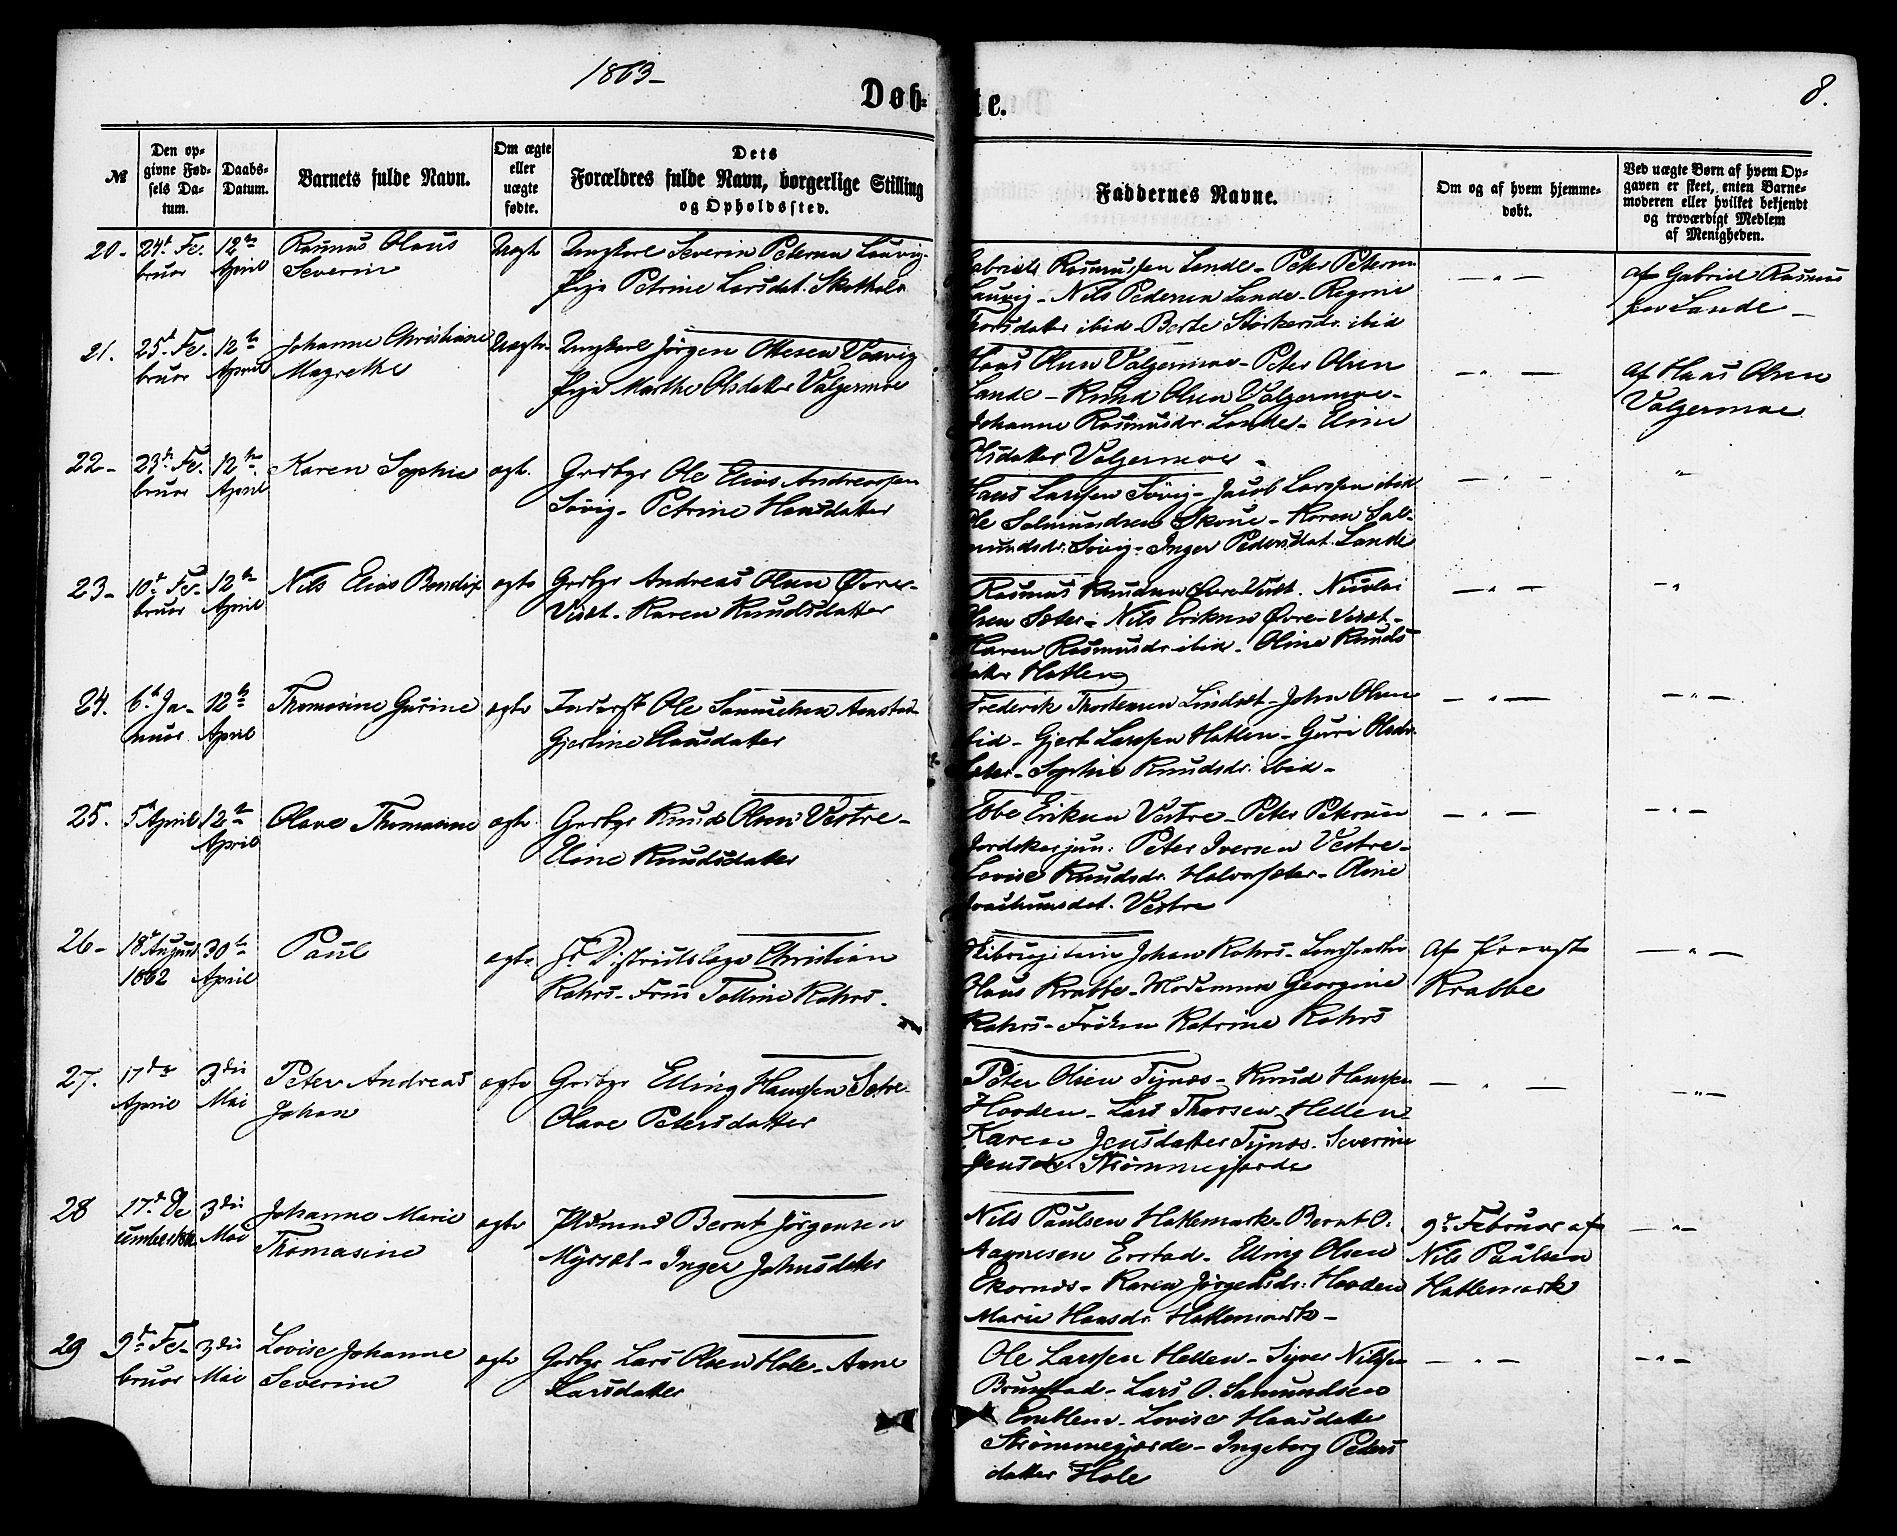 1863-
Døb-
te.
8.
№
Den op-
givne Fød-
sels Da-
tum.
Daabs-
Datum.
Barnets fulde Navn.
Om ægte
eller
uægte
fødte.
Dets
Forældres fulde Navn, borgerlige Stilling
og Opholdssted.
Faddernes Navne.
Om og af hvem hjemme-
døbt.
Ved uægte Børn af hvem Op-
gaven er skeet, enten Barne-
moderen eller hvilket bekjendt
og troværdigt Medlem
af Menigheden.
20-
24d Fe-
bruar
12te
April
Rasmus Olaus
Severin
Uægte
Ungkarl Severin Petersen Lauvig-
Pige Petrine Larsdat.
Gabriel Rasmussen Lande- Peter Petersen
Lauvig- Nils Pedersen Lande- Regine
Thorsdatter ibid- Berte Størkersdr. ibid
af Gabriel Rasmus
sen Lande
21.
25d Fe-
bruar
12te
April
Johanne Christiane
Magrethe
Uægte
Ungkarl Jørgen Ottesen Vaavig
Pige Marthe Olsdatter Valgermoe
Hans Olsen Valgermoe- Peter Olsen
Lande- Knud Olsen Valgermoe-
Johanne Rasmusdr. Lande- Eline
Olsdatter Valgermoe-
af Hans Olsen
Valgermoe
22-
23d Fe-
bruar
12te
April
Karen Sophie
ægte
Grdbgr Ole Elias Andreassen
Søvig- Petrine Hansdatter
Hans Larssen Søvig- Jacob Larssen ibid
Ole Salmundsen Skoue- Karen Sal-
mundsdr. Søvig- Inger Pedersdat. Lande
23-
10d Fe-
bruar
12te
April
Nils Elias Bendix
ægte
Grdbgr Andreas Olsen Øvre-
Viset- Karen Knudsdatter
Rasmus Knudsen Øvre Viset. Nicolai
Olsen Sæter- Nils Eriksen Øvre-Viset-
Karen Rasmusdr. ibid- Oline Knuds
datter Hatlen
24.
6te Ja-
nuar
12te
April
Thomasine Gurine
ægte
Inderst Ole Samuelsen Aarstad-
Gjertine Clausdatter
Frederik Thorstensen Lindset- John Olsen
ibid- Gjert Larssen Hatlen- Guri Olsdr.
Sæter- Sophie Knudsdr. ibid-
25.
5 April
12te
April
Olave Thomasine
ægte
Grdbgr Knud Olsen Vestre-
Eline Knudsdatter
Ebbe Eriksen Vestre- Peter Petersen
Peter Iversen Vestre-
Lovise Knudsdr. Halvorsæter- Oline
Joachimsdat. Vestre
26-
18d August
1862
30te
April
Paul
ægte
Hr Districtslæge Christian
Rohrs- Frue Tolline Rohrs.
Johan Rohrs-
Claus Krabbe- Georgine
Rohrs- Frøken Katrine Rohrs
Af Provst
Krabbe
27.
17de
April
3die
Mai
Peter Andreas
Johan
ægte
Grdbgr Elling Hanssen Sætre-
Olave Petersdatter
Peter Olsen Tynæs- Knud Hanssen
Hovden- Lars Thorsen Hellen
Karen Jensdatter Tynæs. Severine
Jensdr. Strømmegjerde
28
17d De
cember 1862
3die
Mai
Johanne Marie
Thomasine
ægte
Bernt Jørgensen
Myrset- Inger Johnsdatter
Nils Paulsen Hatlemark- Bernt O.
Aagnesen Erstad- Elling Olsen
Ekornæs- Karen Jørgensdr. Hovden
Marie Hansdr. Hatlemark-
9d Februar af
Nils Paulsen
Hatlemark
29
9d Fe-
bruar
3die
Mai
Lovise Johanne
Severine
ægte
Grdbgr Lars Olsen Hole- Anne
Larsdatter
Ole Larssen Hellen- Syver Nilssen
Brunstad- Lars O. Samundsen
Emblem- Lovise Hansdatter
Strømmegjerde- Ingeborg Peders
datter Hole